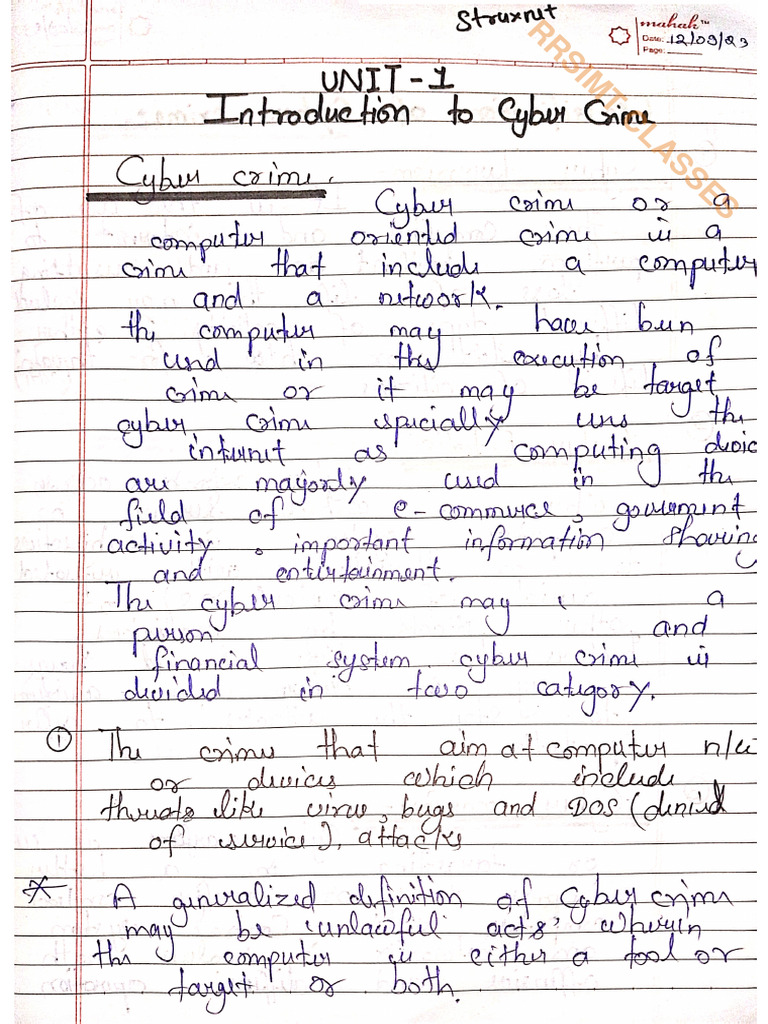 Struxnut
mahak™
Date: 12/09/23
Page:
RRSIMT CLASSES
UNIT-1
Introduction to Cyber Crime
Cyber crime.
Cyber crime or a
computer oriented crime is a
crime that include a computer
and a network.
the computer may have been
used in the execution of
crime or it may be target
cyber crime specially uses the
internet as computing
are majorly used in the
field of e-commerce, government
activity, important information sharing
and entertainment.
The cyber crime may a
person and
financial system cyber crime is
divided in two category.
① The crime that aim at computer n/w
or devices which include
threats like virus, bugs and DOS (denial
of service), attacks
* A generalized definition of Cyber crime
may be 'unlawful acts' wherein
the computer is either a tool or
target or both.